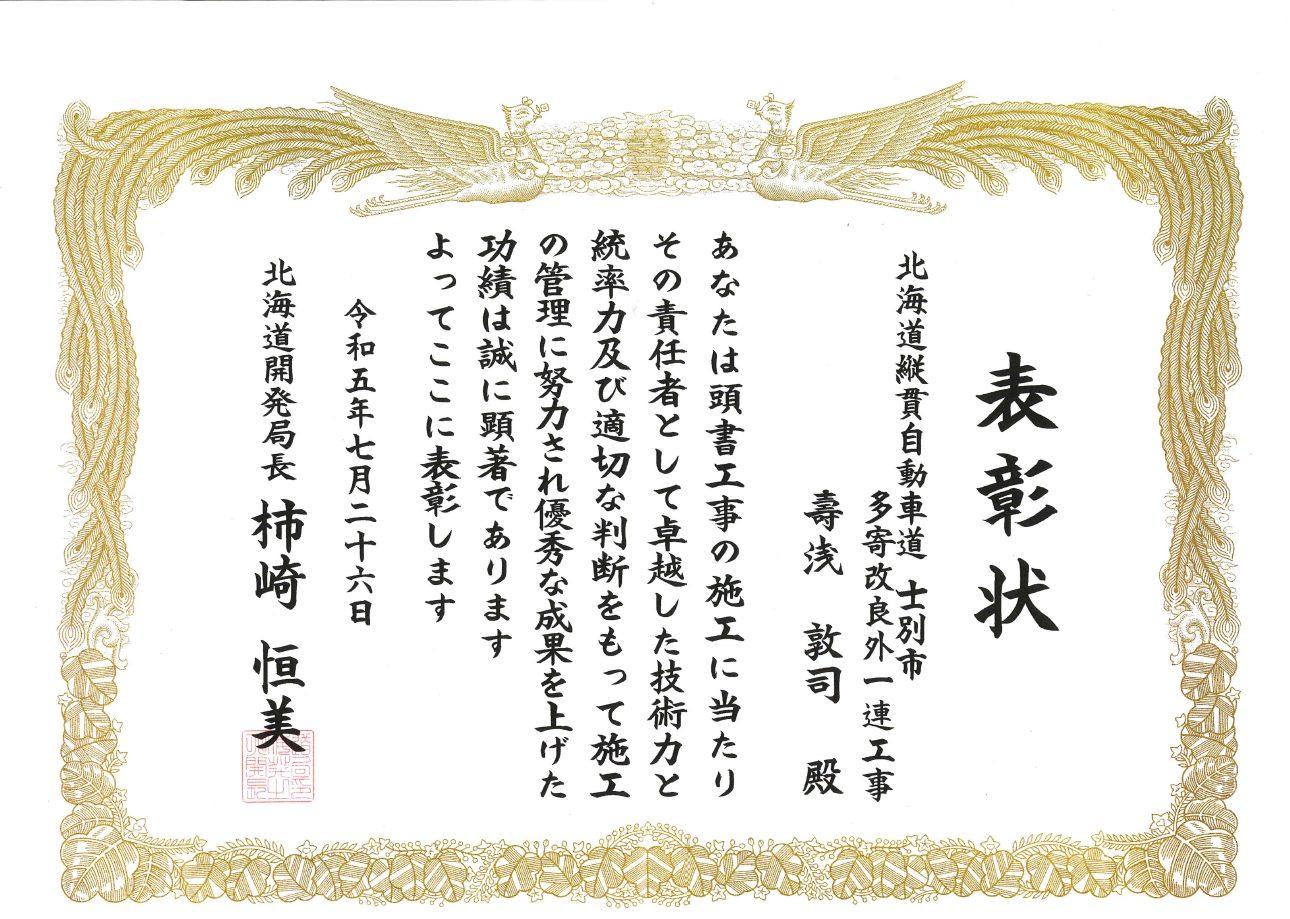 表彰状
北海道縦貫自動車道 士別市
多寄改良外一連工事
壽浅 敦司 殿
あなたは頭書工事の施工に当たり
その責任者として卓越した技術力と
統率力及び適切な判断をもって施工
の管理に努力され優秀な成果を上げた
功績は誠に顕著であります
よってここに表彰します
令和五年七月二十六日
北海道開発局長 柿崎 恒美